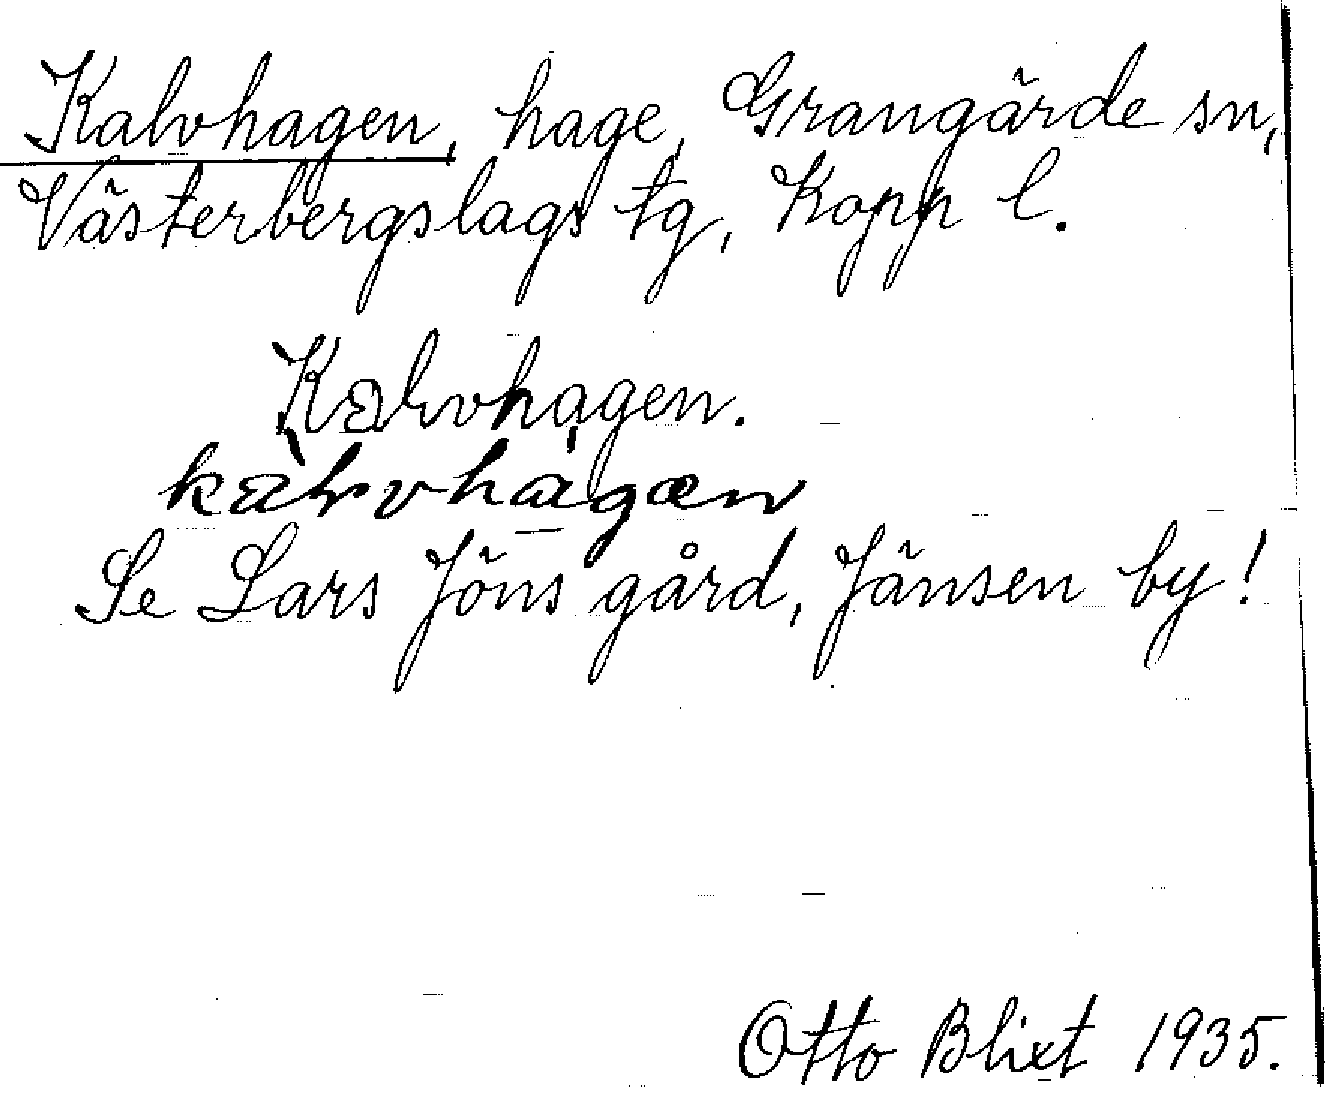 Kalvhagen, hage, Grangärde sn,
Västerbergslags tg, Kopp l.
Kalvhagen.
kàlvhágæn
Se Lars Jöns gård, Jänsen by!
Otto Blixt 1935.